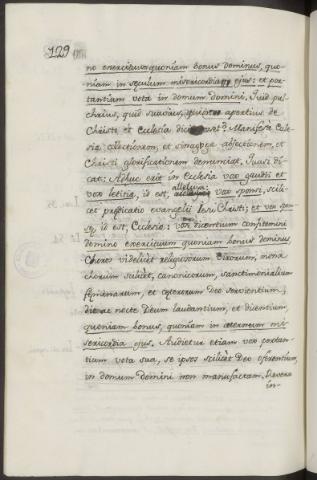 129
no exercituum quoniam bonus dominus, quo-
niam in seculum misericordia ejus: et por-
tantium vota in domum domini. Quid pul-
chrius, quid suavius, apertius de
Christo et Ecclesia Manifeste Ecle-
sia collectionem, et sinagoga abjectionem, et
Christi glorificationem denunciat. Quasi di-
cat: Adhuc erit in Ecclesia vox gaudii et
alleluya:
vox letitia, id est, vox sponsi, scili-
cet predicatio evangelii Iesu Christi; et vox spon-
se id est, Ecclesia: vox dicentium confitemini
domino exercituum quoniam bonus dominus
Choros videlicet religiosorum virorum, mona
chorum scilicet, canonicorum, sanctimonialium
feminarum, et ceterorum Deo servientium,
die ac nocte Deum laudantium, et dicentium,
quoniam bonus, quoniam in aeternum mi-
sericordia ejus. Audietur etiam vox portan-
tium vota sua, se ipsos scilicet Deo offerentium,
in domum domini non manufactam. Devera
in-